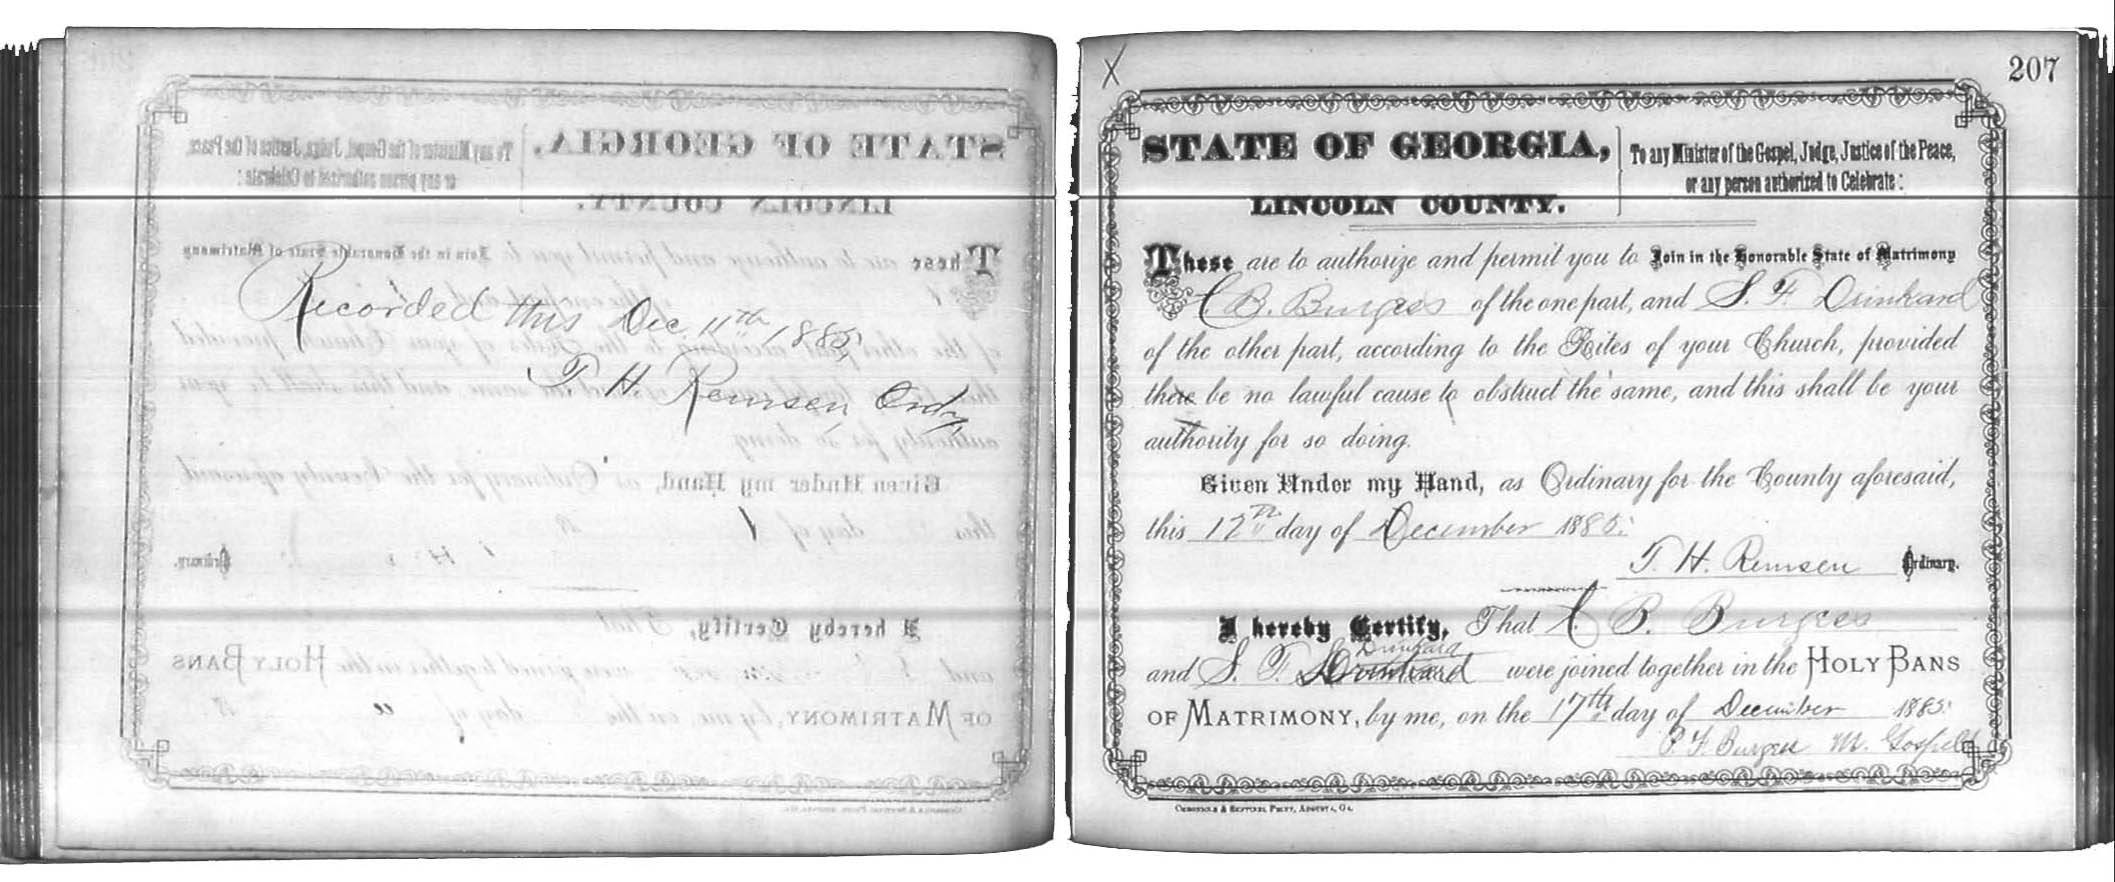 Recorded this Dec 11th 1885
T. H. Remsen Ordy
X
207
STATE OF GEORGIA,
LINCOLN COUNTY.
To any Minister of the Gospel, Judge, Justice of the Peace,
or any person authorized to Celebrate:
These are to authorize and permit you to Join in the Honorable State of Matrimony
B. Burgess of the one part, and S. F. Drinkard
of the other part, according to the Rites of your Church, provided
there be no lawful cause to obstruct the same, and this shall be your
authority for so doing.
Given Under my Hand, as Ordinary for the County aforesaid,
this 12th day of December 1885.
T. H. Remsen Ordinary.
I hereby Certify, That B. Burgess
Drinkard
and S. F. Drinkard were joined together in the HOLY BANS
OF MATRIMONY, by me, on the 17th day of December 1885.
P. F. Burgess M. Gospel
CHRONICLE & SENTINEL PRINT, AUGUSTA, GA.